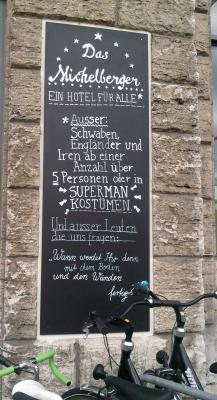 Das
Michelberger
EIN HOTEL FÜR ALLE*
* Ausser:
Schwaben,
Engländer und
Iren ab einer
Anzahl über
5 Personen oder in
SUPERMAN
KOSTÜMEN
Und ausser Leuten
die uns fragen:
„Wann werdet Ihr denn
mit dem Boden
und den Wänden
fertig?"